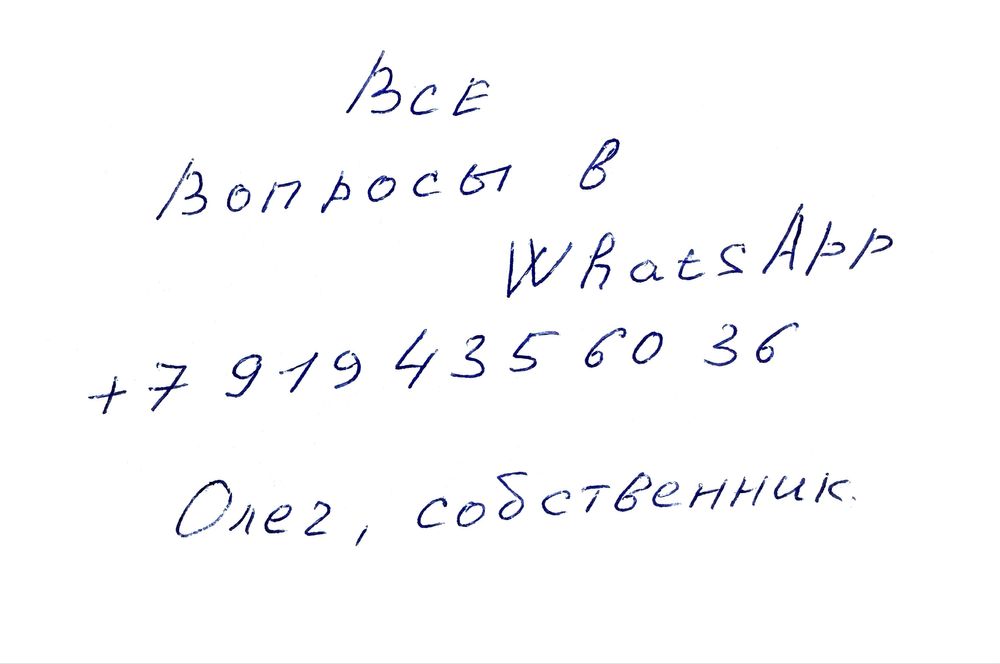 Все
Вопросы в
WhatsApp
+7 919 435 60 36
Олег, собственник.